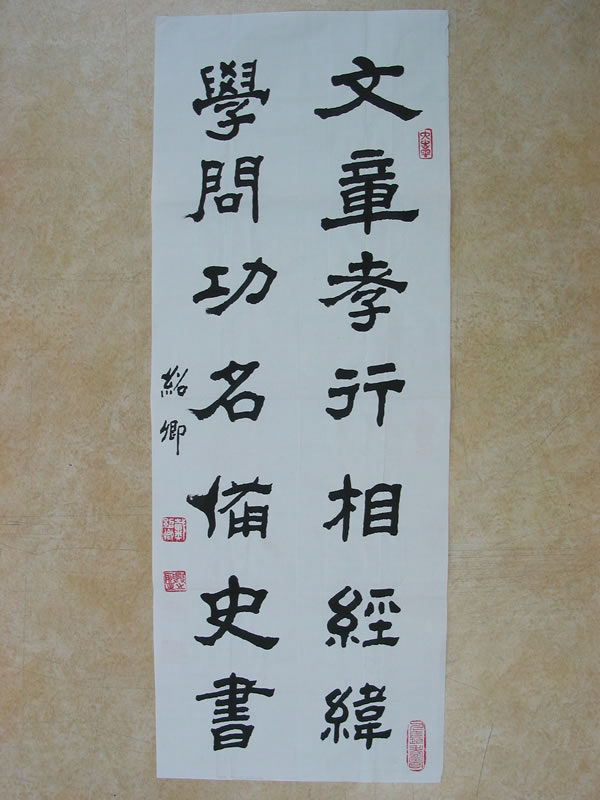 文章孝行相經緯
學問功名備史書
紹卿